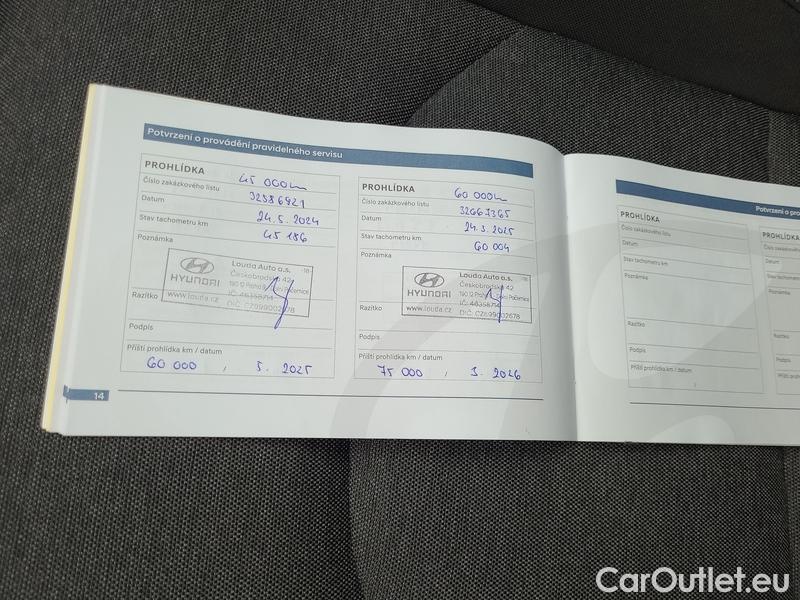 Potvrzení o provádění pravidelného servisu
PROHLÍDKA 45 000km
Číslo zakázkového listu 32586921
Datum 24.5.2024
Stav tachometru km 45 186
Poznámka
HYUNDAI
www.louda.cz
Louda Auto a.s. -18-
Českobrodská 42
190 12 Praha 9
IČ: 46358714
DIČ: CZ699002678
Razítko
Podpis
Příští prohlídka km / datum
60 000 , 5. 2025
PROHLÍDKA 60 000km
Číslo zakázkového listu 32667365
Datum 24.3.2025
Stav tachometru km 60 004
Poznámka
HYUNDAI
www.louda.cz
Louda Auto a.s. -18-
Českobrodská 42
190 12 Praha Dolní Počernice
IČ: 46358714
DIČ: CZ699002678
Razítko
Podpis
Příští prohlídka km / datum
75 000 , 3. 2026
14
Potvrzení o pro
PROHLÍDKA
Číslo zakázkového listu
Datum
Stav tachometru km
Poznámka
Razítko
Podpis
Příští prohlídka km / datum
PROHLÍDKA
Číslo zakázkové
Datum
Stav tachometr
Poznámka
Razítko
Podpis
Příští prohlídk
CarOutlet.eu